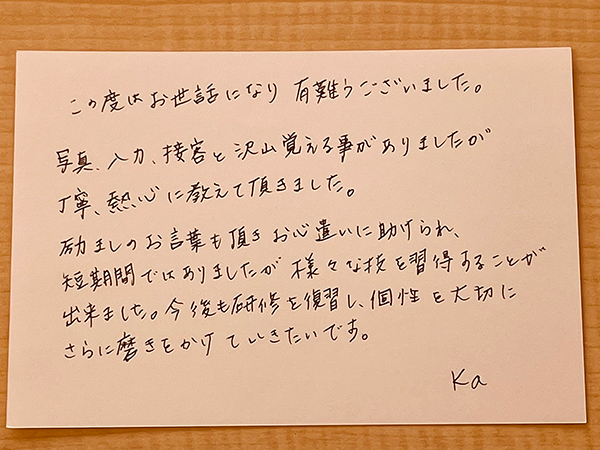 この度はお世話になり 有難うございました。
写真、入力、接客と沢山覚える事がありましたが
丁寧、熱心に教えて頂きました。
励ましのお言葉も頂きお心遣いに助けられ、
短期間ではありましたが 様々な技を習得することが
出来ました。今後も研修を復習し、個性を大切に
さらに磨きをかけていきたいです。
Ka